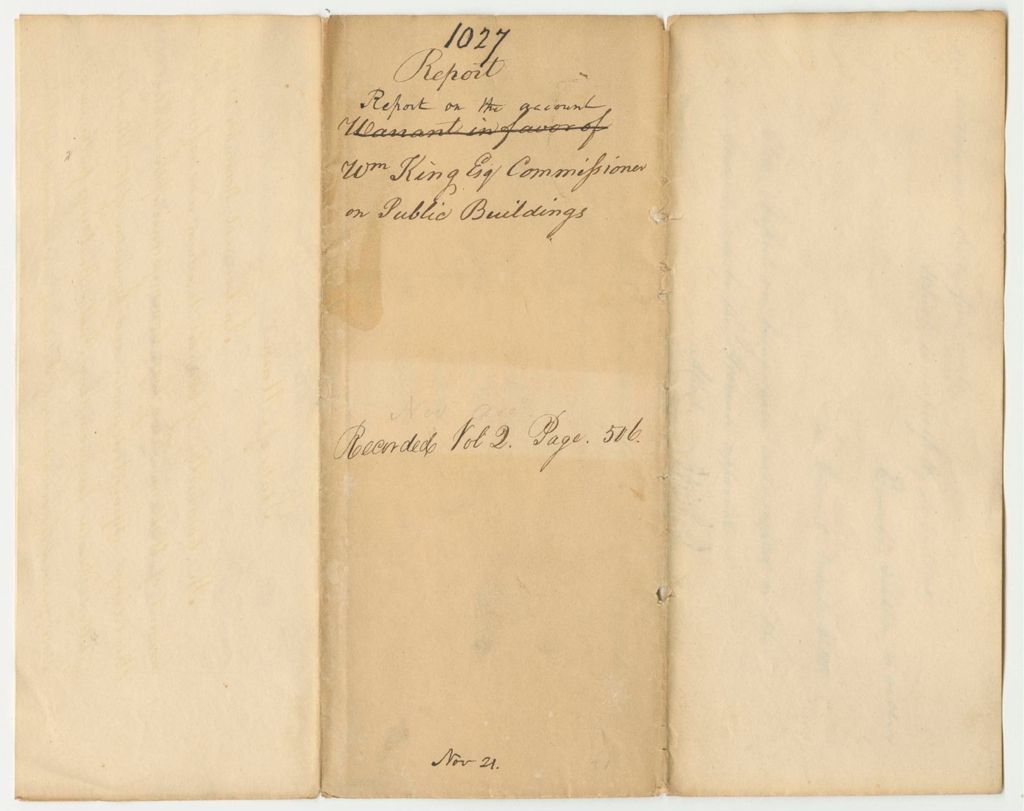 1027
Report
Report on the account
Warrant in favor of
Wm King Esq Commissioner
on Public Buildings
Recorded Vol 2. Page. 506.
Nov 21.